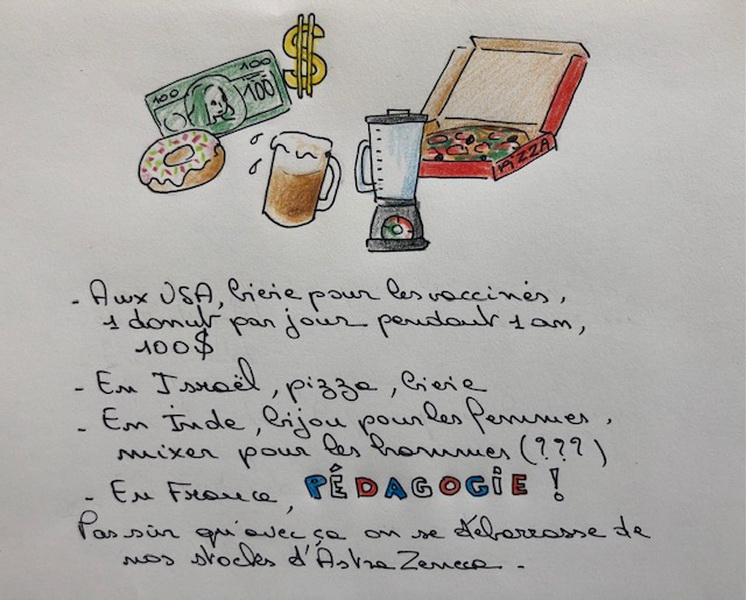 100 100 100
$
PIZZA
- Aux USA, bière pour les vaccinés,
1 donut par jour pendant 1 an,
100$
- En Israël, pizza, bière
- En Inde, bijou pour les femmes,
mixer pour les hommes (???)
- En France, PÉDAGOGIE !
Pas sûr qu'avec ça on se débarrasse de
nos stocks d'Astra Zeneca.